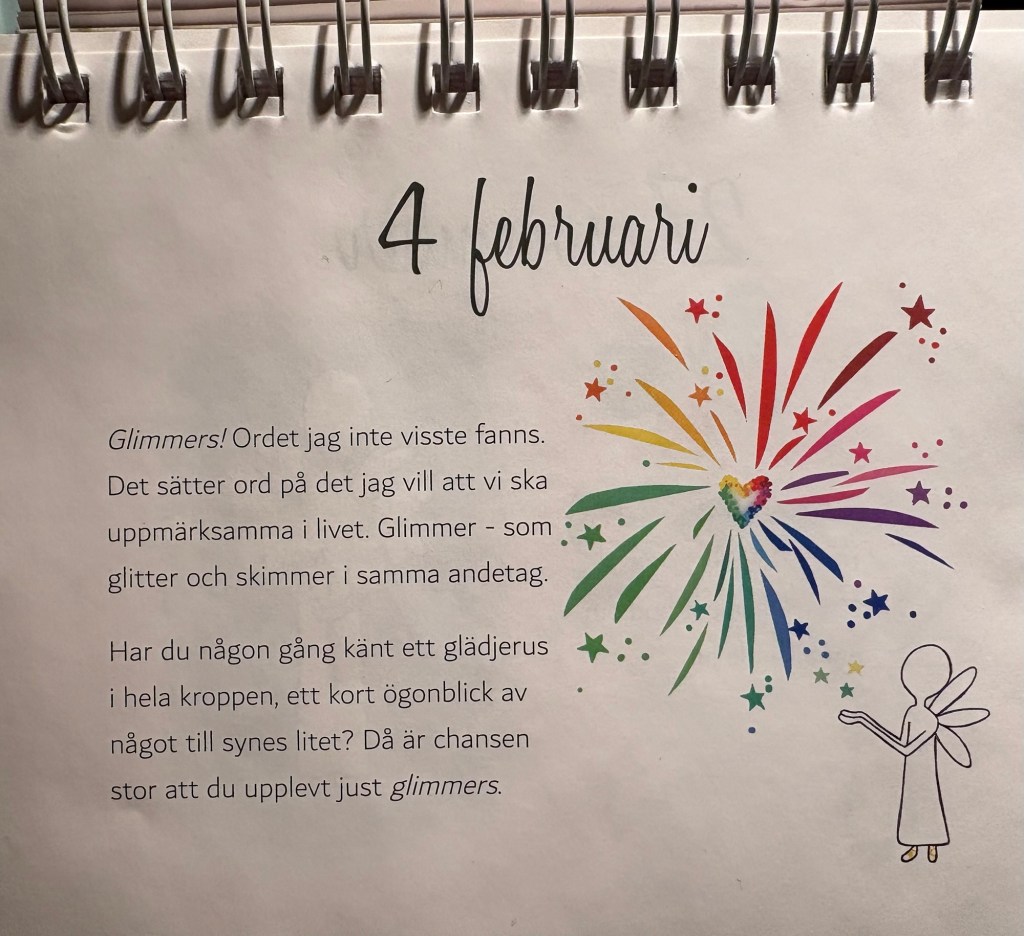 4 februari
Glimmers! Ordet jag inte visste fanns.
Det sätter ord på det jag vill att vi ska
uppmärksamma i livet. Glimmer - som
glitter och skimmer i samma andetag.
Har du någon gång känt ett glädjerus
i hela kroppen, ett kort ögonblick av
något till synes litet? Då är chansen
stor att du upplevt just glimmers.